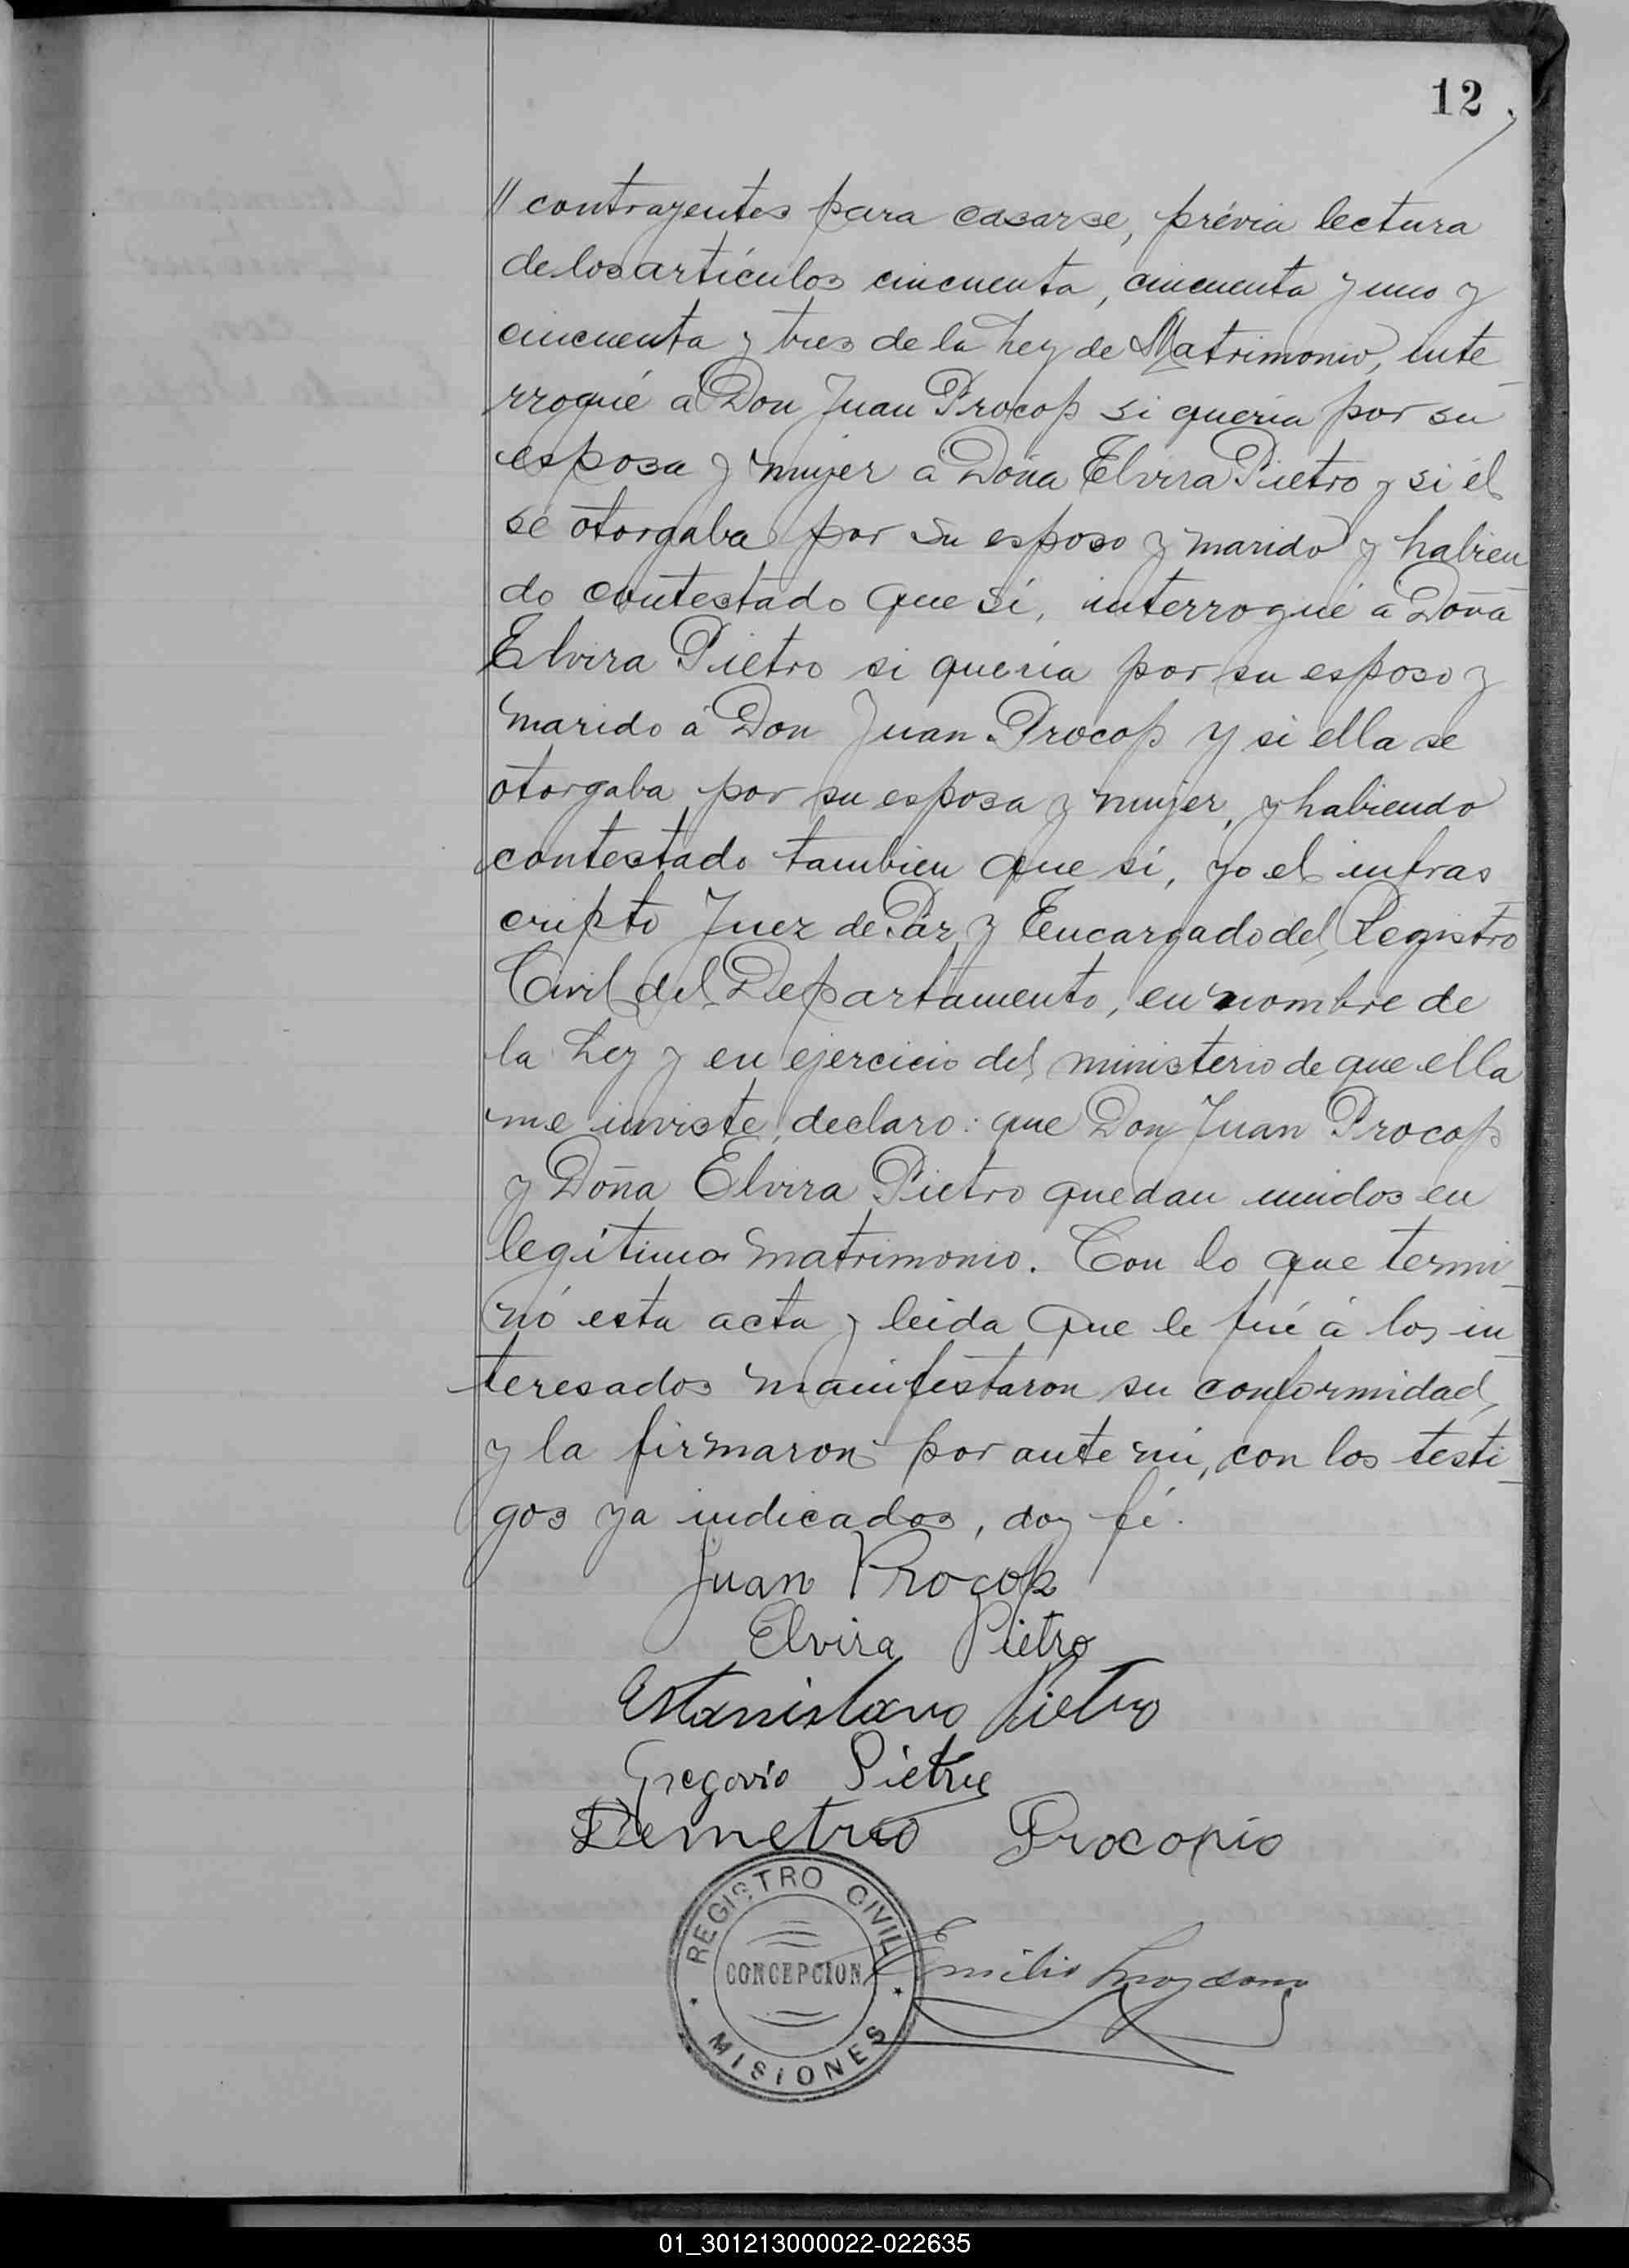 12
// contrayentes para casarse, prévia lectura
de los artículos cincuenta, cincuenta y uno y
cincuenta y tres de la Ley de Matrimonio, inte
rrogué á Don Juan Procop si quería por su
esposa y mujer á Doña Elvira Pietro y si él
se otorgaba por su esposo y marido y habien
do contestado que sí, interrogué á Doña
Elvira Pietro si quería por su esposo y
marido á Don Juan Procop y si ella se
otorgaba por su esposa y mujer, y habiendo
contestado tambien que sí, yo el infras
cripto Juez de Paz y Encargado del Registro
Civil del Departamento, en nombre de
la Ley y en ejercicio del ministerio de que ella
me inviste, declaro: que Don Juan Procop
y Doña Elvira Pietro quedan unidos en
legítimo matrimonio. Con lo que termi-
nó esta acta y leida que le fué á los in-
teresados manifestaron su conformidad,
y la firmaron por ante mí, con los testi-
gos ya indicados, doy fé.
Juan Procop
Elvira Pietro
Estanislavo Pietro
Gregorio Pietro
Demetrio Procopio
REGISTRO CIVIL
CONCEPCION
MISIONES
Emilio
01_301213000022-022635